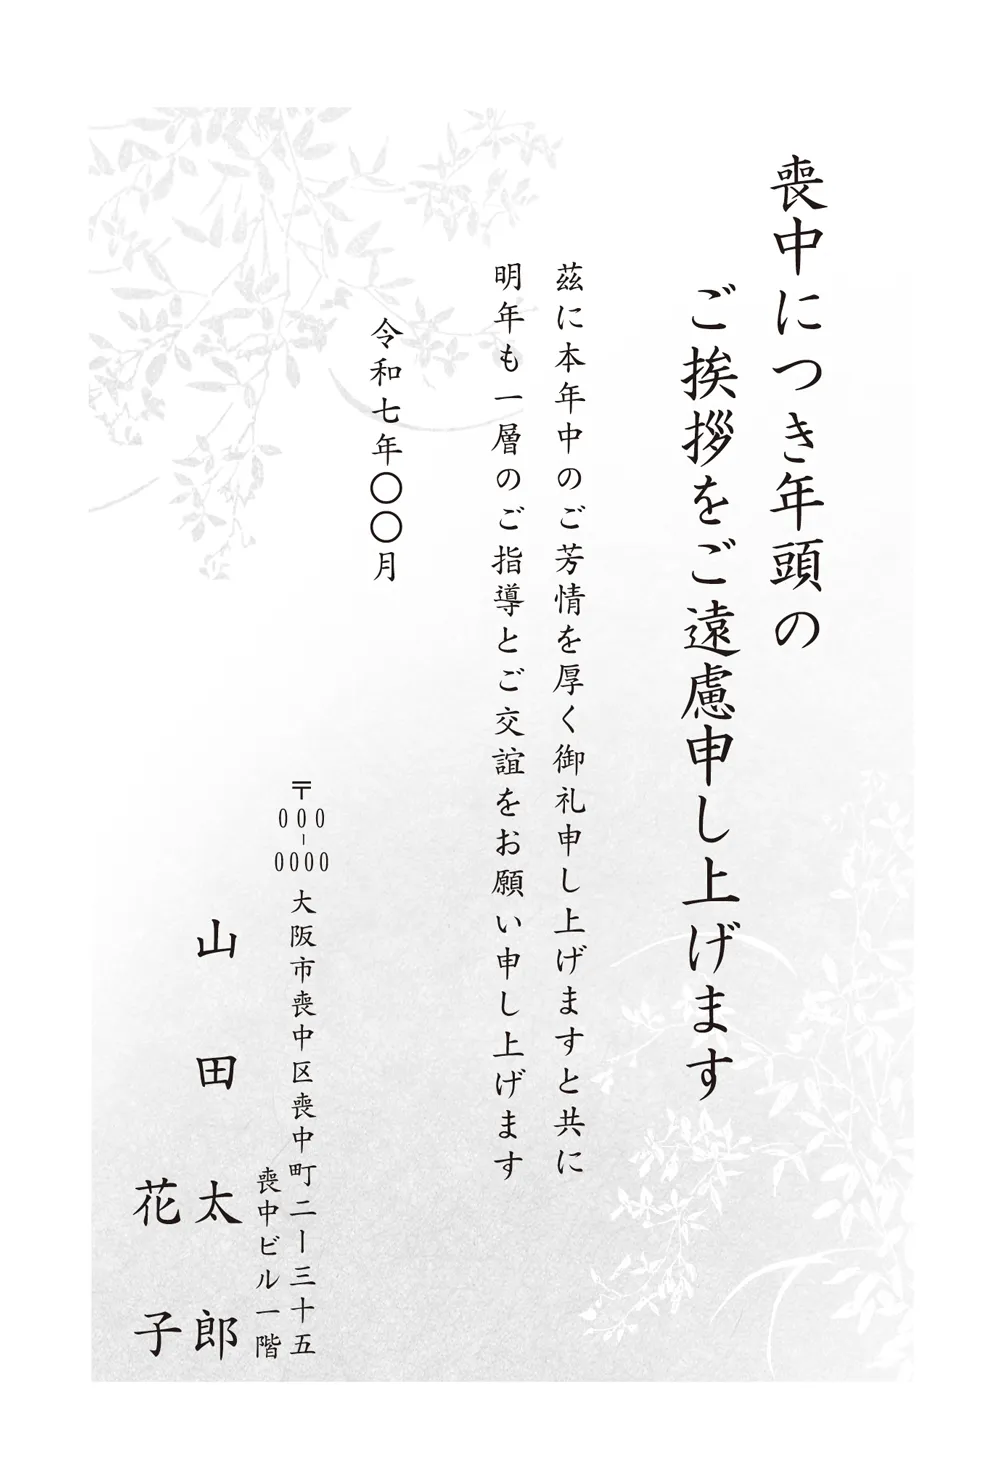 喪中につき年頭の
ご挨拶をご遠慮申し上げます
茲に本年中のご芳情を厚く御礼申し上げますと共に
明年も一層のご指導とご交誼をお願い申し上げます
令和七年〇〇月
〒000-0000
大阪市喪中区喪中町二ー三十五
喪中ビル一階
山田太郎
花子